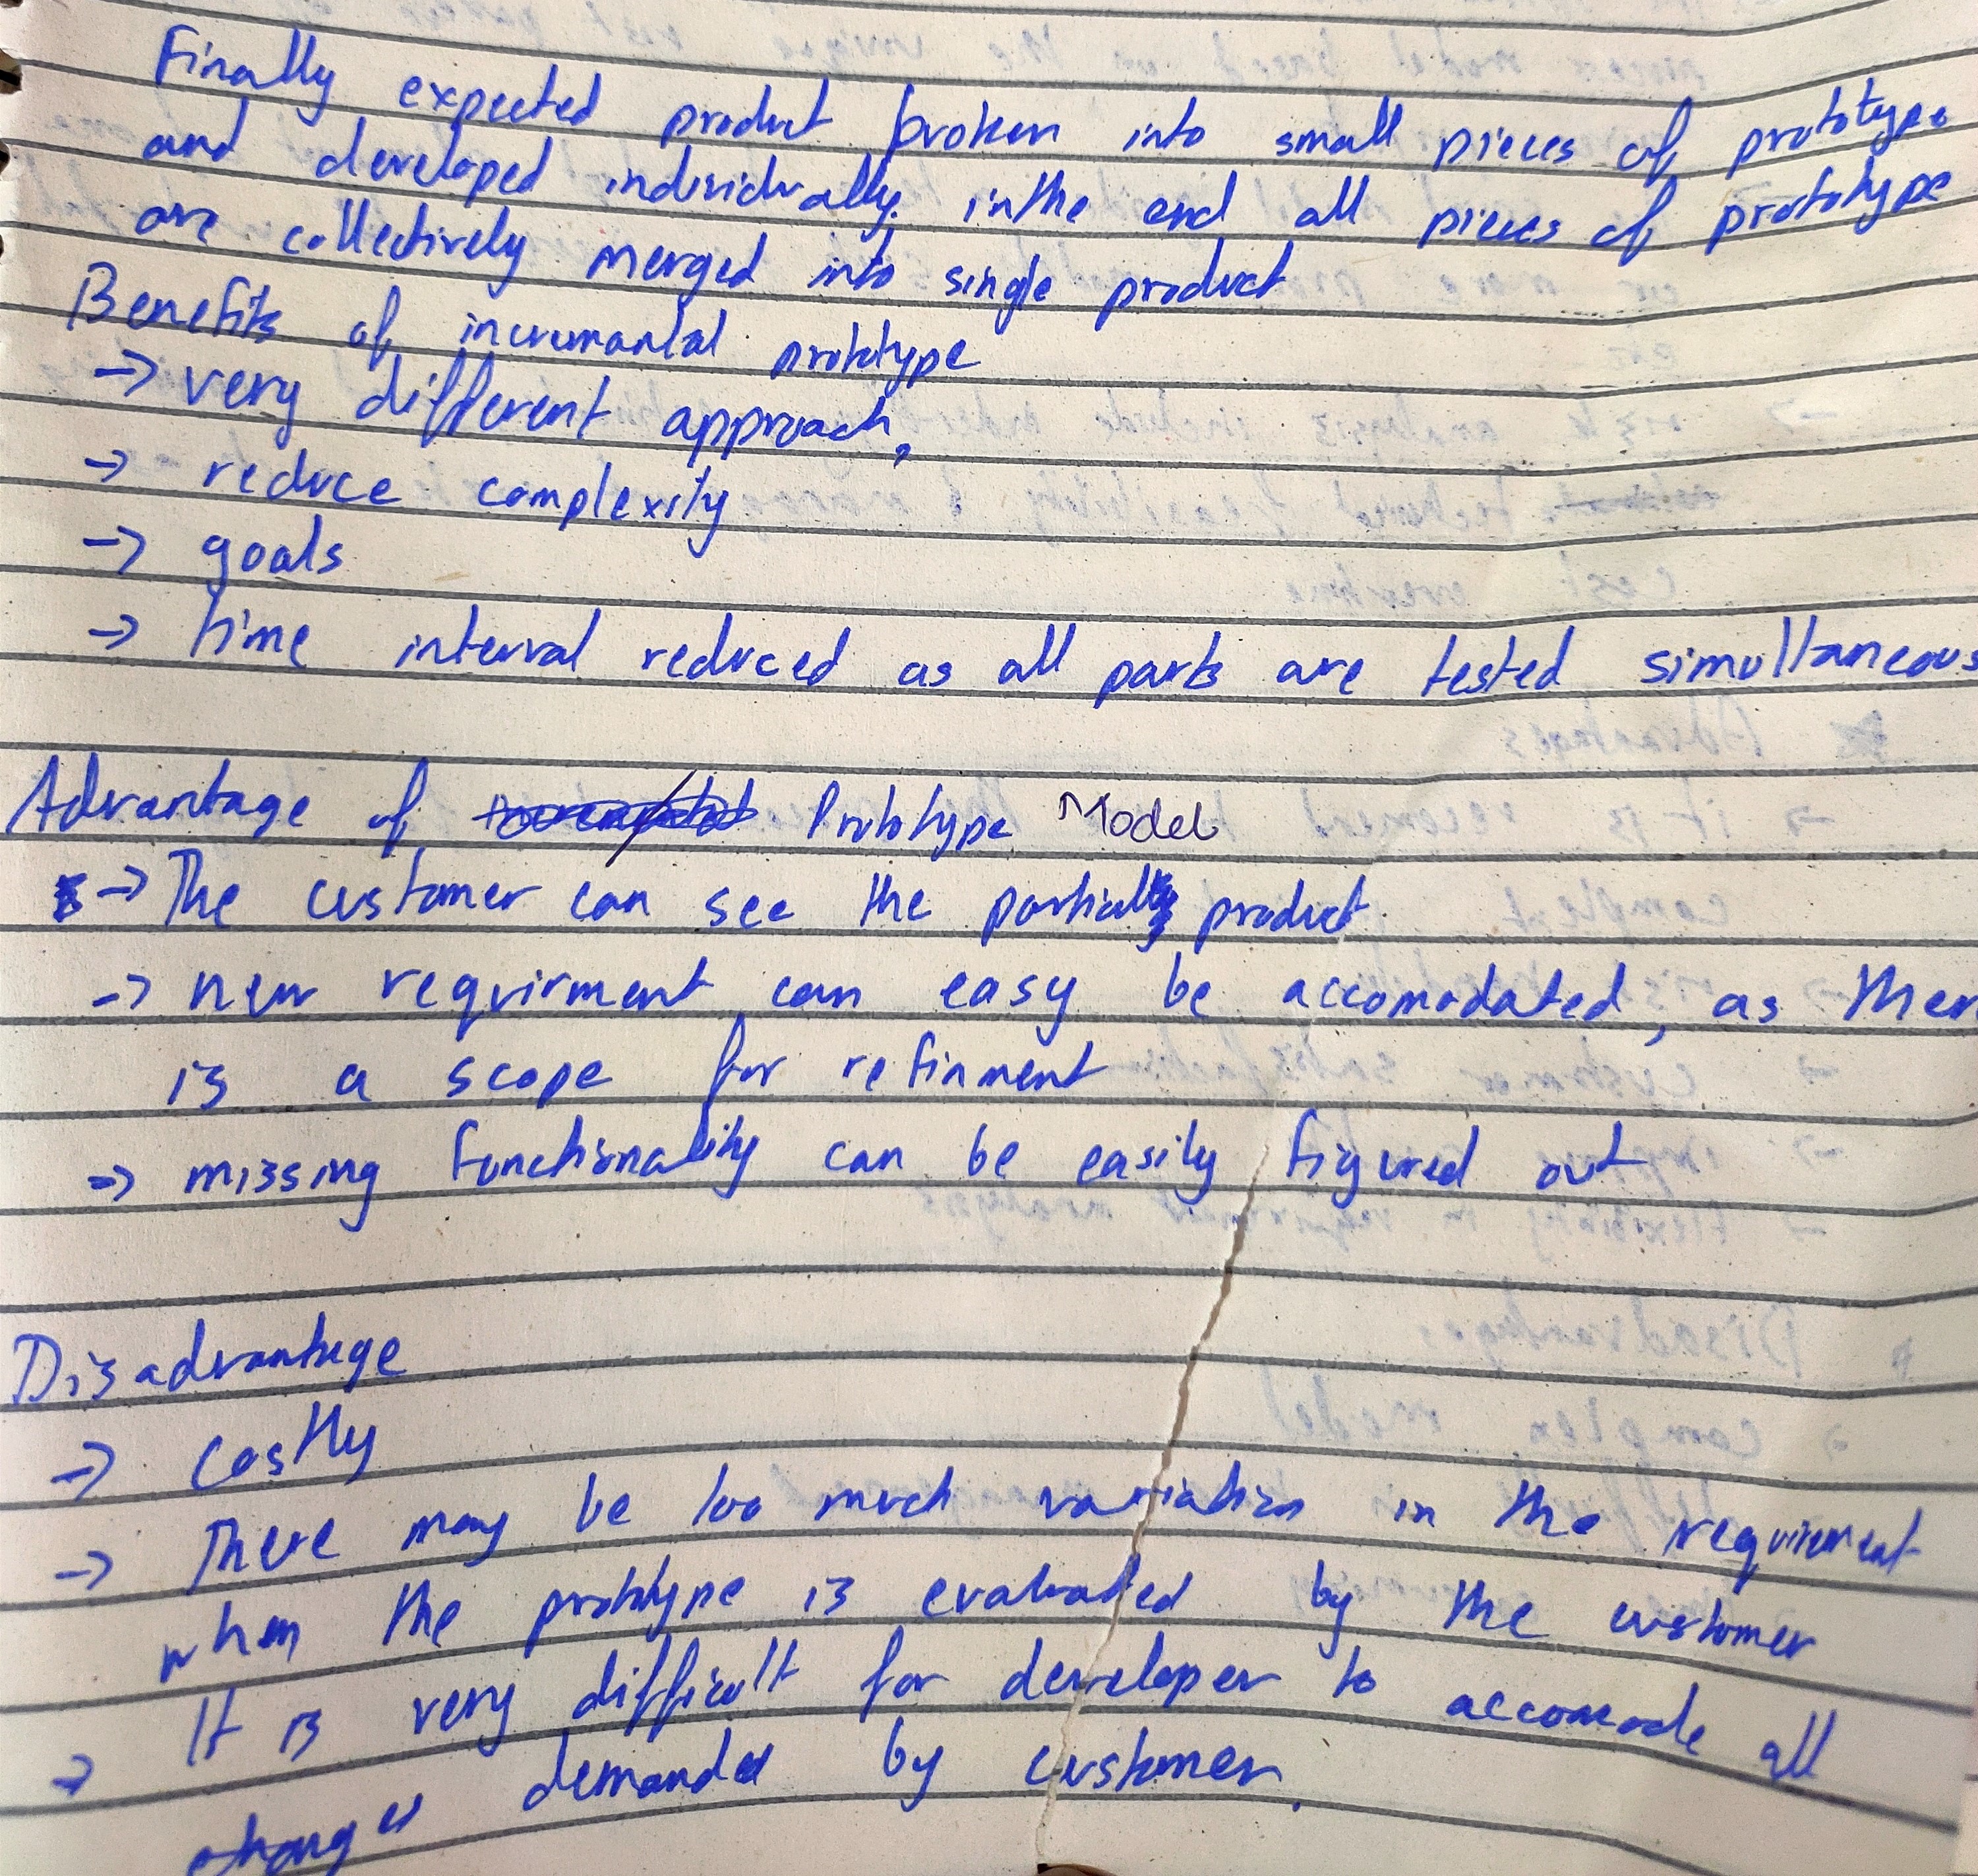 Finally expected product broken into small pieces of prototype
and developed individually. in the end all pieces of prototype
are collectively merged into single product
Benefits of incrumantal prototype
→ very different approach,
→ reduce complexity
→ goals
→ time interval reduced as all parts are tested simultaneous
Advantage of Prototype Model
→ The customer can see the partially product
→ new requirment can easy be accomodated, as ther
is a scope for refinment
→ missing functionality can be easily figured out
Disadvantage
→ costly
→ There may be too much variation in the requirement
when the prototype is evaluated by the customer
→ It is very difficult for developer to accomode all
changes demanded by customer.